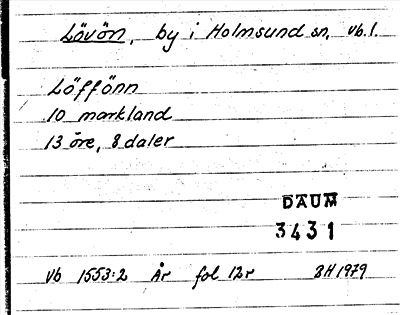 Lövön, by i Holmsund sn, Vb.l.
Löffönn
10 markland
13 öre, 8 daler
DAUM
3431
Vb 1553:2 År fol 12r BH 1979